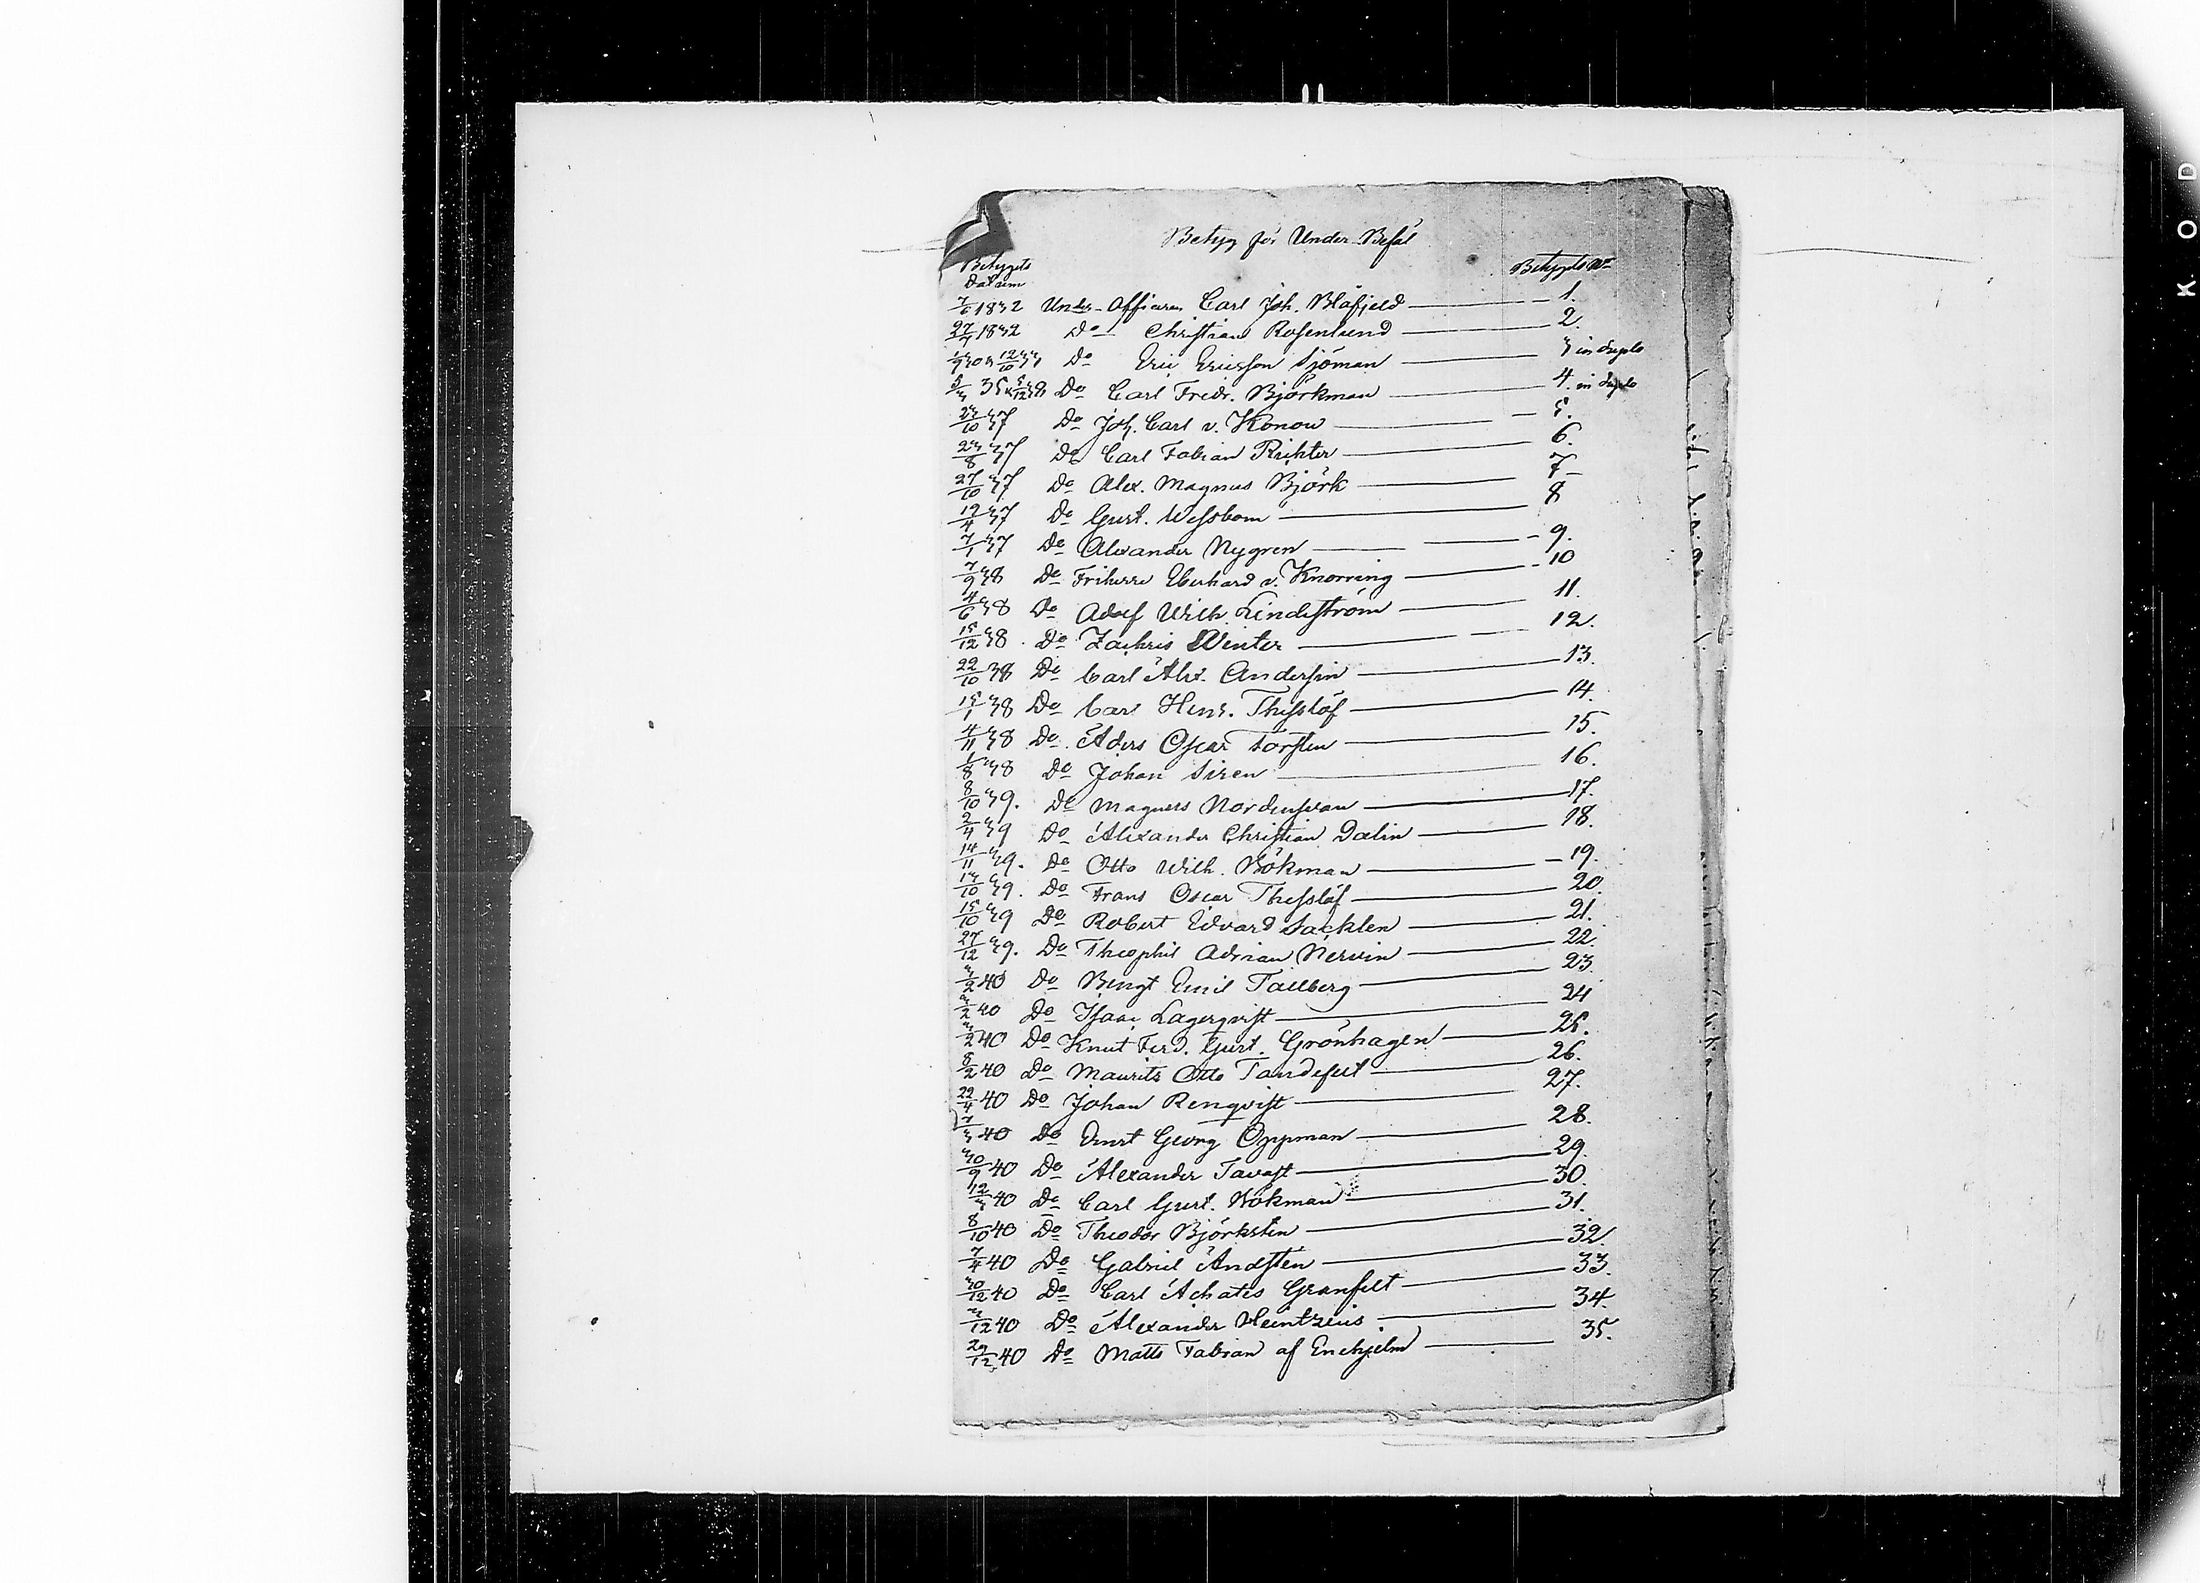 Betyg för Under-Befäl
Betygets Datum
Betygets No
7/6 1832 Under-Officeren Carl Joh. Blåfjeld 1.
27/7 1832 Do Christian Rosenlund 2.
Do Eric Ericsson Sjöman 3 in duplo
Do Carl Fredr. Björkman 4. in duplo
23/10 37 Do Joh. Carl v. Konow 5.
23/8 37 Do Carl Fabian Richter 6.
27/10 37 Do Alex. Magnus Björk 7
12/4 37 Do Gust. Wessbom 8
7/1 37 Do Alexander Nygren 9.
7/9 38 Do Friherre Eberhard v. Knorring 10
4/6 38 Do Adolf Wilh. Lindström 11.
15/12 38 Do Zachris Winter 12.
22/10 38 Do Carl Alex. Andersin 13.
15/1 38 Do Carl Henr. Thesslöf 14.
4/11 38 Do Oscar Torsten 15.
1/8 38 Do Johan Siren 16.
8/10 39. Do Magnus Nordenswan 17.
2/4 39 Do Alexander Christian Dalin 18.
14/11 39. Do Otto Wilh. Bökman 19.
13/10 39. Do Frans Oscar Thesslöf 20.
15/10 39 Do Robert Edvard Sacklen 21.
27/12 39. Do Theophil Adrian 22.
3/2 40 Do Bengt Emil Tallberg 23
3/2 40 Do Isaac Lagerqvist 24
3/2 40 Do Knut Ferd. Gust. Grönhagen 25.
8/2 40 Do Maurits Otto Tandefelt 26.
22/4 40 Do Johan Renqvist 27.
7/3 40 Do Ernst Georg Oppman 28.
30/9 40 Do Alexander Tavast 29.
12/3 40 Do Carl Gust. Bökman 30.
8/10 40 Do Theodor Björksten 31.
7/4 40 Do Gabriel Andsten 32.
30/12 40 Do Carl Achates Granfelt 33.
3/12 40 Do Alexander Heintzius 34.
29/12 40 Do Matts Fabian af Enehjelm 35.
K O D